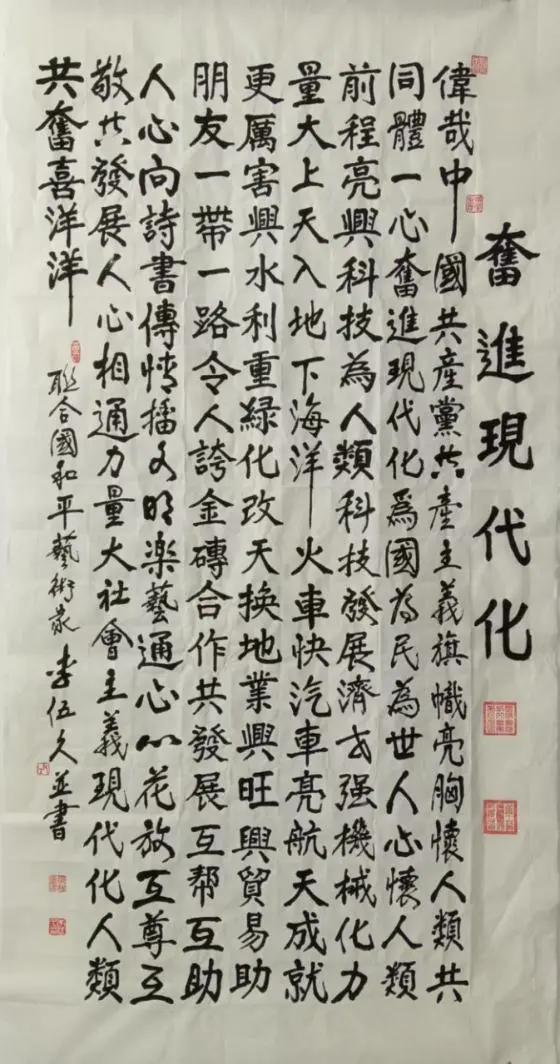 奮進現代化
偉哉中國共産黨共産主義旗幟亮胸懷人類共
同體一心奮進現代化爲國為民為世人心懷人類
前程亮興科技為人類科技發展濟玄强機械化力
量大上天入地下海洋火車快汽車亮航天成就
更厲害興水利重緑化改天換地業興旺興貿易助
朋友一帶一路令人誇金磚合作共發展互帮互助
人心向詩書傳情播文明楽藝通心心花放互尊互
敬共發展人心相通力量大社會主義現代化人類
共奮喜洋洋
聯合國和平藝術家李伍久並書